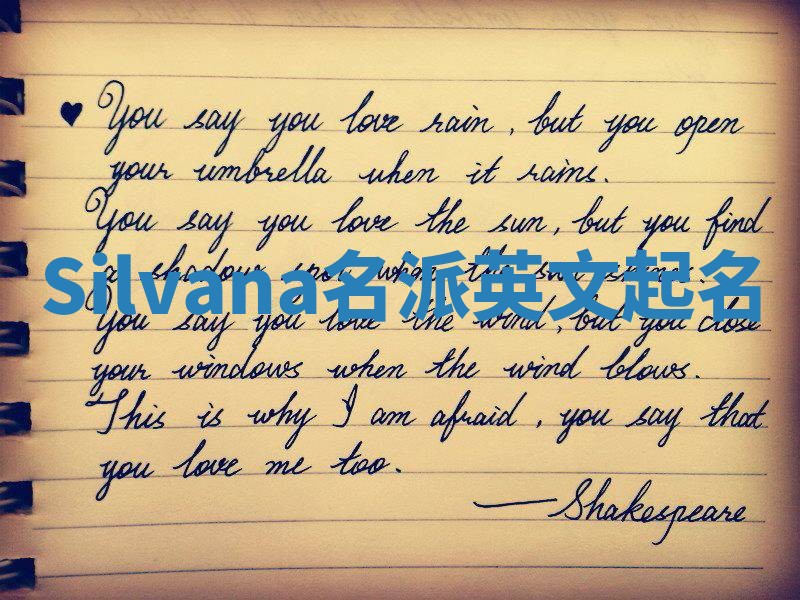 ♥ You say you love rain, but you open
your umbrella when it rains.
You say you love the sun, but you find
a shadow spot when the sun shines.
Silvana名派英文起名
You say you love the wind, but you close
your windows when the wind blows.
This is why I am afraid, you say that
you love me too.
—Shakespeare